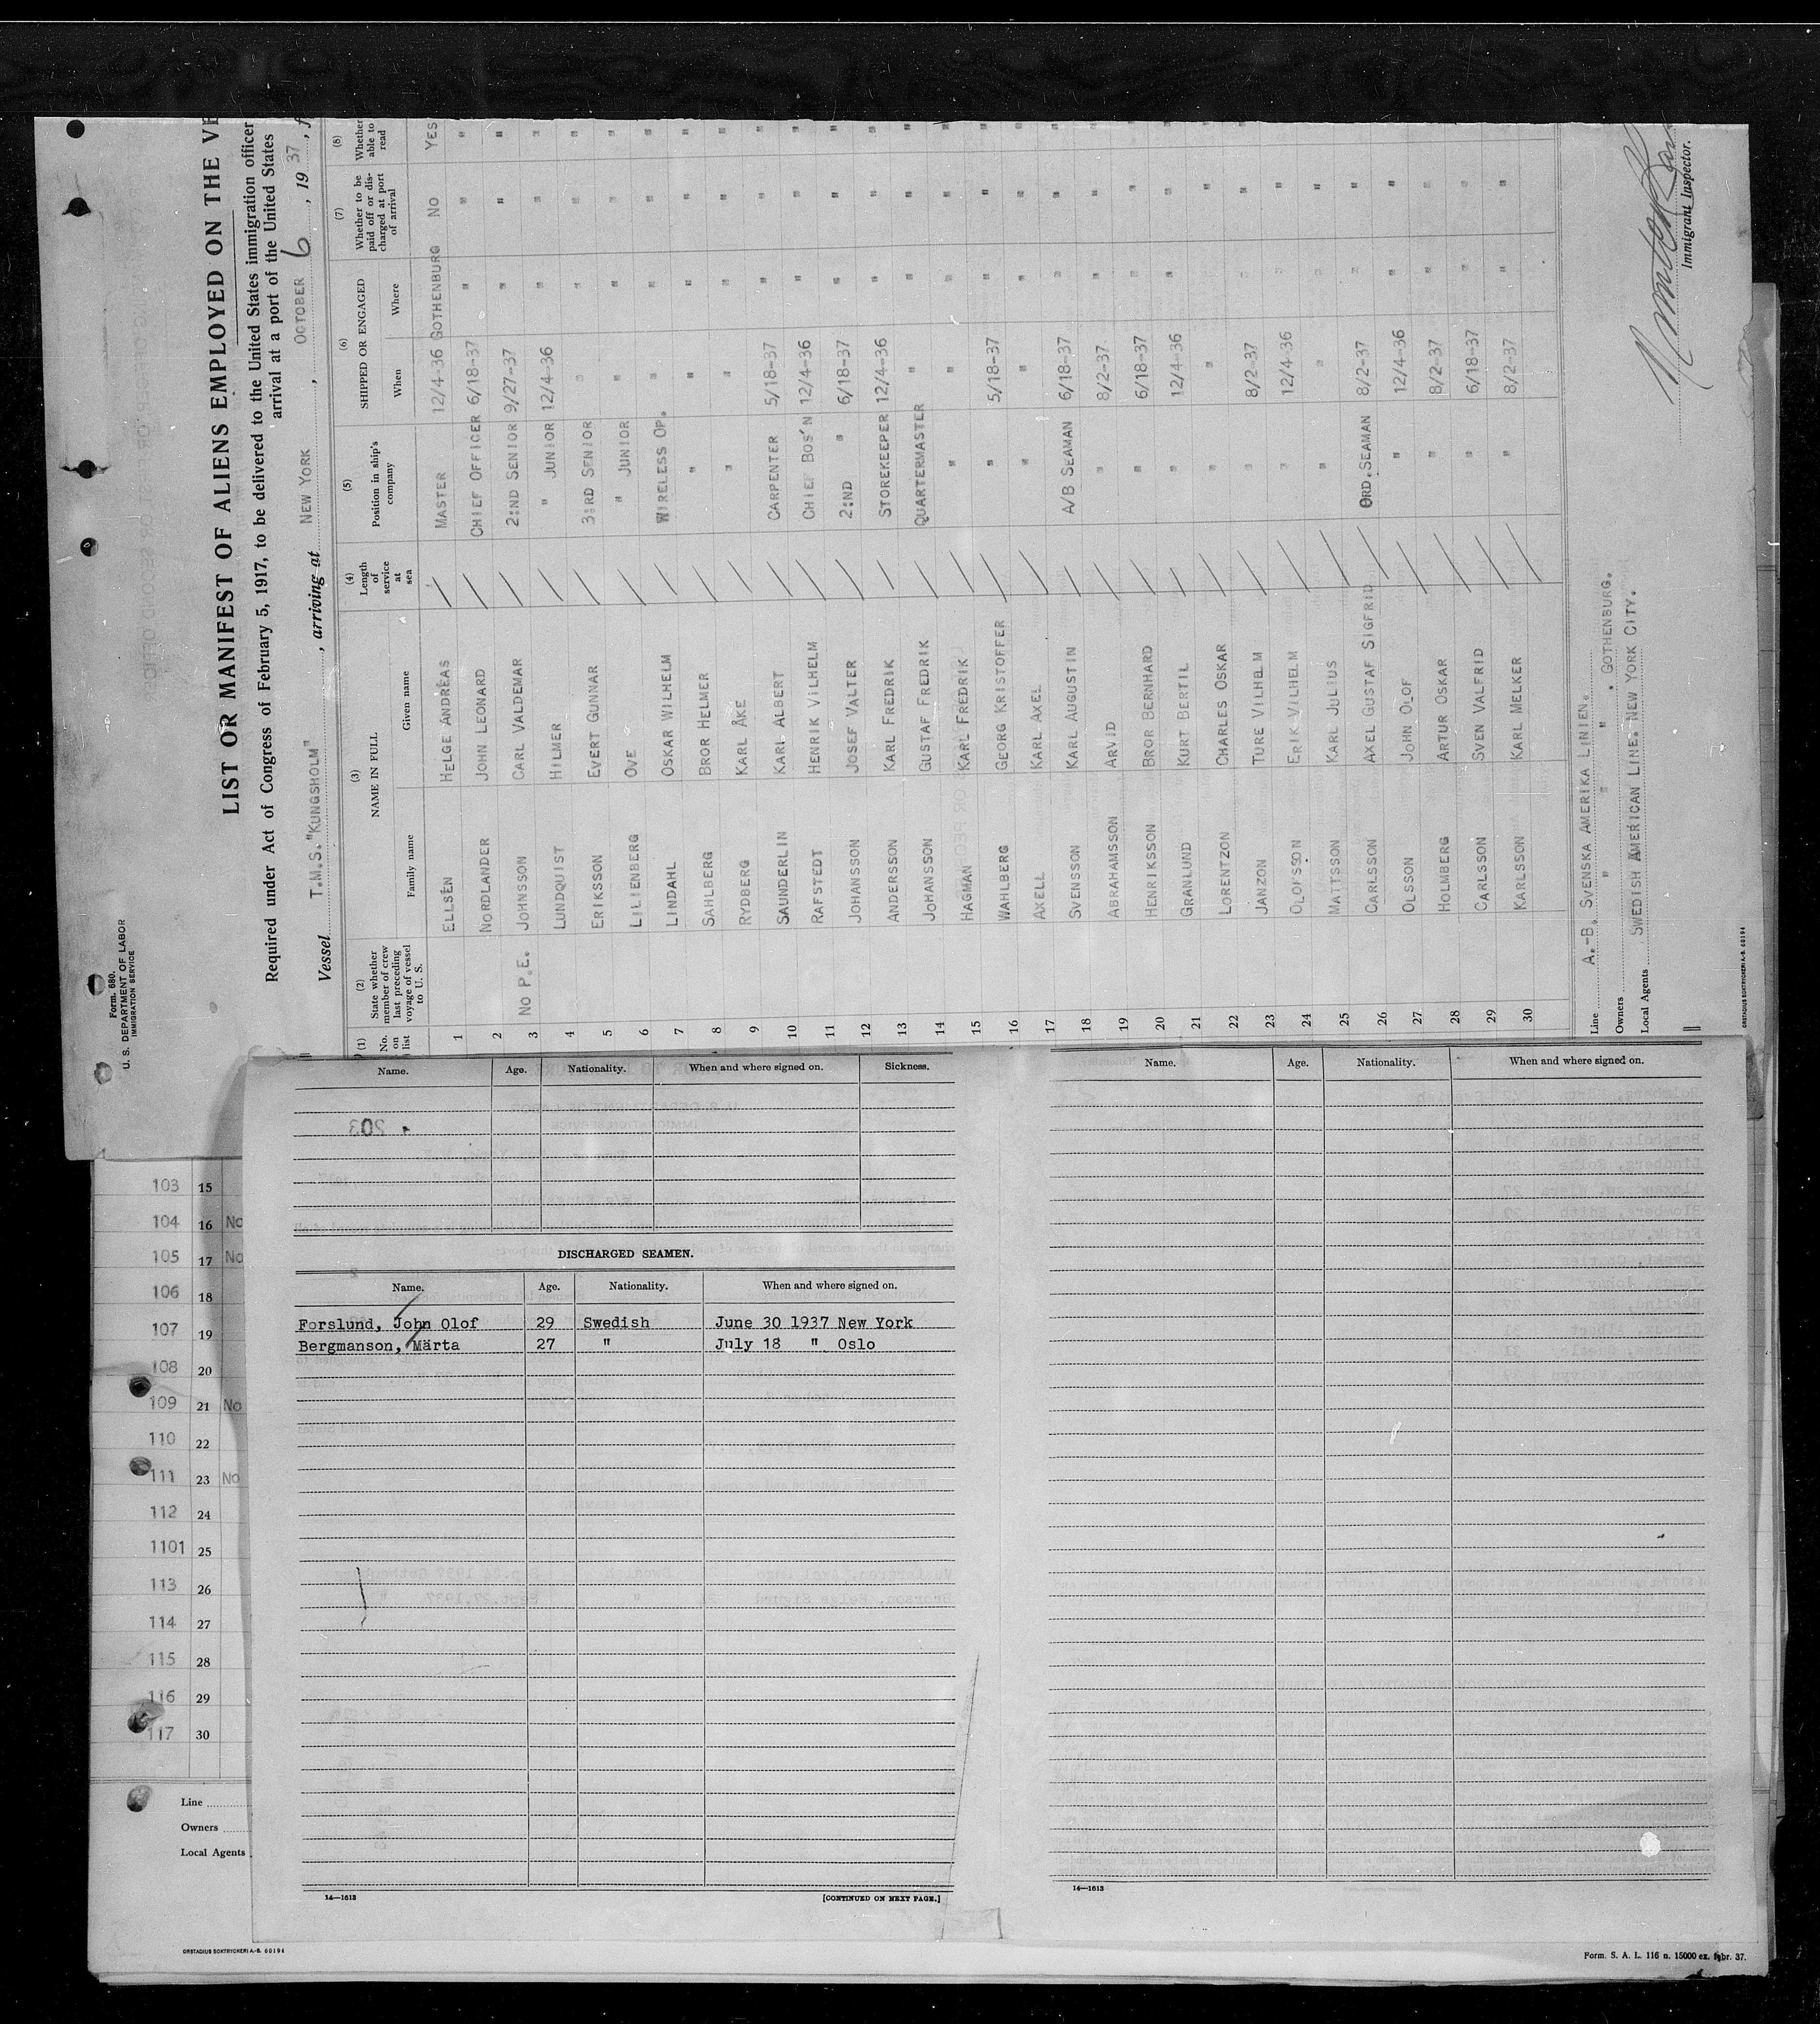 Form. 680.
U. S. DEPARTMENT OF LABOR
IMMIGRATION SERVICE
LIST OR MANIFEST OF ALIENS EMPLOYED ON THE VE
Required under Act of Congress of February 5, 1917, to be delivered to the United States immigration officer
arrival at a port of the United States
Vessel T.M.S."KUNGSHOLM", arriving at NEW YORK, OCTOBER 6, 19 37, f
(1) No. on list (2) State whether member of crew last preceding voyage of vessel to U. S. (3) NAME IN FULL Family name Given name (4) Length of service at sea (5) Position in ship's company (6) SHIPPED OR ENGAGED When Where (7) Whether to be paid off or discharged at port of arrival (8) Whether able to read
1 ELLSÉN HELGE ANDREAS / MASTER 12/4-36 GOTHENBURG NO YES
2 NORDLANDER JOHN LEONARD / CHIEF OFFICER 6/18-37 " " "
3 NO P.E. JOHNSSON CARL VALDEMAR / 2:ND SENIOR 9/27-37 " " "
4 LUNDQUIST HILMER / " JUNIOR 12/4-36 " " "
5 ERIKSSON EVERT GUNNAR / 3:RD SENIOR " " " "
6 LILIENBERG OVE / " JUNIOR " " " "
7 LINDAHL OSKAR WILHELM / WIRELESS OP. " " " "
8 SAHLBERG BROR HELMER / " " " " "
9 RYDBERG KARL ÅKE / " " " " "
10 SAUNDERLIN KARL ALBERT / CARPENTER 5/18-37 " " "
11 RAFSTEDT HENRIK VILHELM / CHIEF BOS'N 12/4-36 " " "
12 JOHANSSON JOSEF VALTER / 2:ND " 6/18-37 " " "
13 ANDERSSON KARL FREDRIK / STOREKEEPER 12/4-36 " " "
14 JOHANSSON GUSTAF FREDRIK / QUARTERMASTER " " " "
15 HAGMAN KARL FREDRIK / " " " " "
16 WAHLBERG GEORG KRISTOFFER / " 5/18-37 " " "
17 AXELL KARL AXEL / " " " " "
18 SVENSSON KARL AUGUSTIN / A/B SEAMAN 6/18-37 " " "
19 ABRAHAMSSON ARVID / " 8/2-37 " " "
20 HENRIKSSON BROR BERNHARD / " 6/18-37 " " "
21 GRANLUND KURT BERTIL / " 12/4-36 " " "
22 LORENTZON CHARLES OSKAR / " " " " "
23 JANZON TURE VILHELM / " 8/2-37 " " "
24 OLOFSSON ERIK VILHELM / " 12/4-36 " "
25 MATTSSON KARL JULIUS / " " " "
26 CARLSSON AXEL GUSTAF SIGFRID / ORD.SEAMAN 8/2-37 " "
27 OLSSON JOHN OLOF / " 12/4-36 " "
28 HOLMBERG ARTUR OSKAR / " 8/2-37 " "
29 CARLSSON SVEN VALFRID / " 6/18-37 " "
30 KARLSSON KARL MELKER / " 8/2-37 " "
Line A.-B. SVENSKA AMERIKA LINIEN.
Owners " " " . GOTHENBURG.
Local Agents SWEDISH AMERICAN LINE. NEW YORK CITY.
Immigrant Inspector.
ORSTADIUS BOKTRYCKERI A.-B. 60194
Name. Age. Nationality. When and where signed on. Sickness.
203
DISCHARGED SEAMEN.
Name. Age. Nationality. When and where signed on.
Forslund, John Olof 29 Swedish June 30 1937 New York
Bergmanson, Märta 27 " July 18 " Oslo
14—1613
[CONTINUED ON NEXT PAGE.]
Name. Age. Nationality. When and where signed on.
14—1613
103 15
104 16 No
105 17 No
106 18
107 19
108 20
109 21 No
110 22
111 23 No
112 24
1101 25
113 26
114 27
115 28
116 29
117 30
Line
Owners
Local Agents
ORSTADIUS BOKTRYCKERI A.-B. 60194
Form. S. A. L. 116 n. 15000 ex. febr. 37.